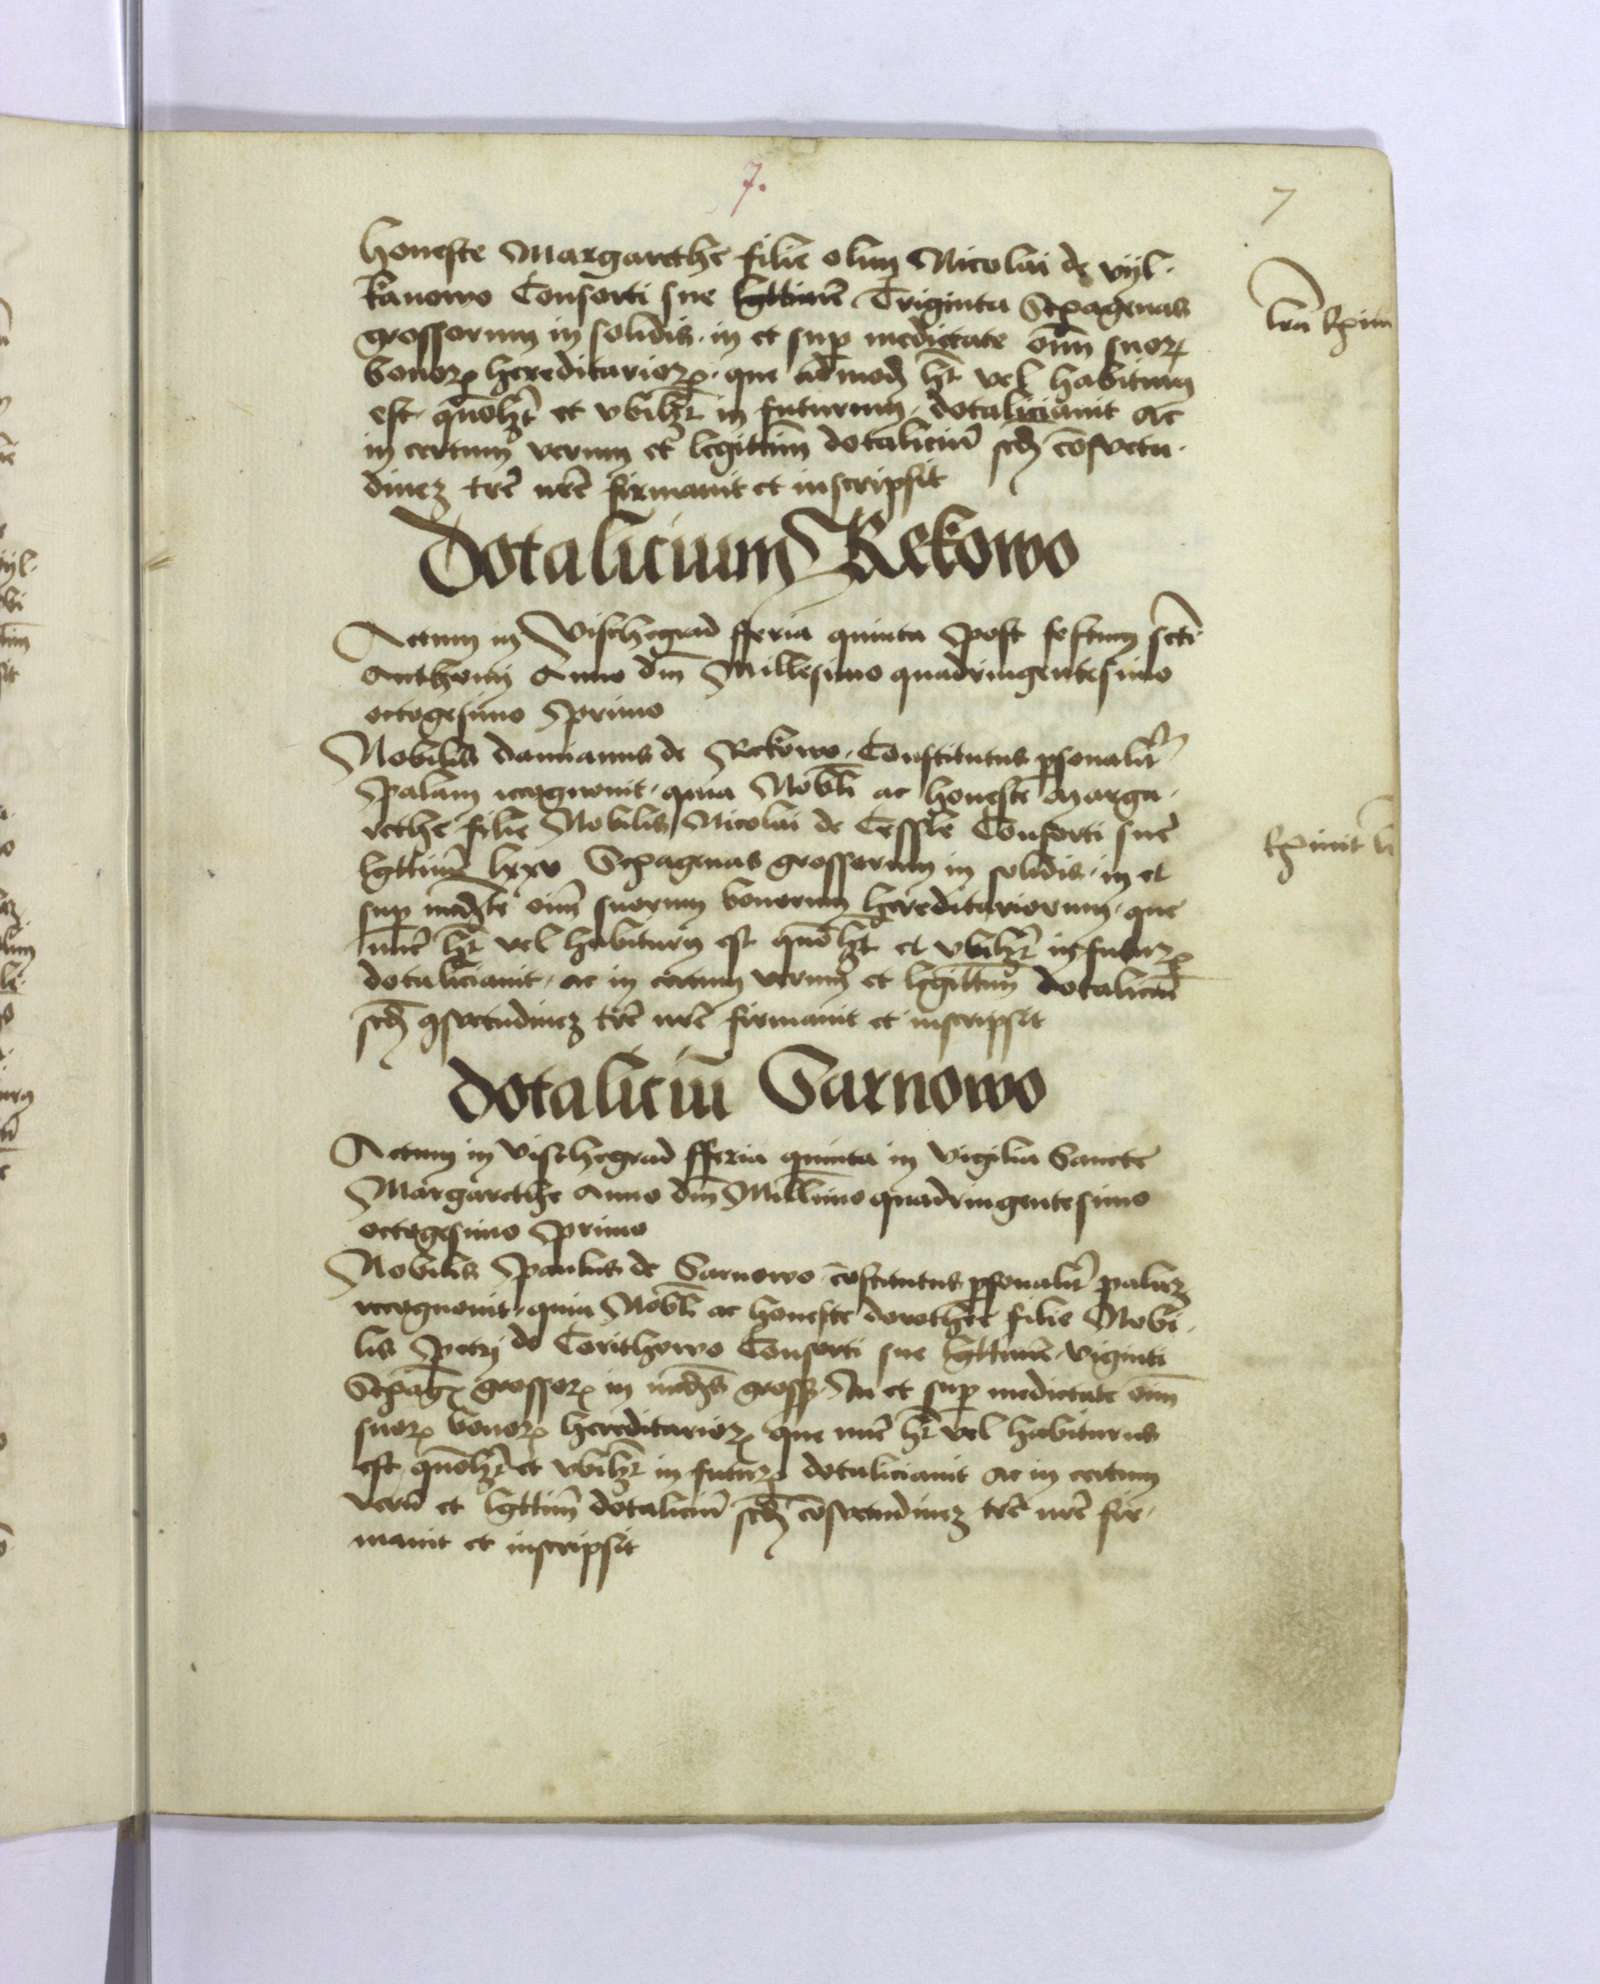 7.
7
honeste Margarethe filie olim Nicolai de vyl-
kanowo Consorti sue lgttime Triginta Scxagenas
grossorum in solidis in et sup medietate oim suorꝝ
bonorꝝ hereditariorꝝ que admodum ht vel habiturus
est quomodolibet et vbilibet in futurum dotaliciauit ac
in certum verum et legittim dotaliciu scdm cosvetu-
dinez tre nre firmauit et inscripsit
Dotalicium Rekowo
Actum in Vischegrad fferia quinta post festum scti
Anthonij Anno dni Millesimo quadringentesimo
octogesimo primo
Nobilis damianus de Rekowo Constitutus psonalitr
palam recognouit quia Nobli ac honeste Marga-
rethe filie Nobilis Nicolai de Cessle Consorti sue
lgttime lxxv Scxagenas grossorum in solidis in et
sup medte oim suorum bonorum hereditariorum que
nuc ht vel habiturus est quolibet et vbilibet in futurꝝ
dotaliciauit ac in certum verum et legittim dotaliciu
scdm 9svetudinez tre nre firmauit et inscripsit
dotaliciu Sarnowo
Actum in vischegrad fferia quinta in vigilia Sancte
Margarethe Anno dni Millimo quadringentesimo
octogesimo primo
Nobilis Paulus de Sarnowo costitutus psonalitr palaz
recognouit quia Nobli ac honeste dorothee filie Nobi-
lis Petrj de Corithowo Consorti sue lgttime viginti
Scxagꝝ grossorꝝ in medis gross In et sup medietate oim
suorꝝ bonorꝝ hereditariorꝝ que nuc ht vel habiturus
est quolibet et vbilibet in futurꝝ dotaliciauit ac in certum
veru et lgttim dotaliciu scdm cosvetudinez tre nre fir-
mauit et inscripsit